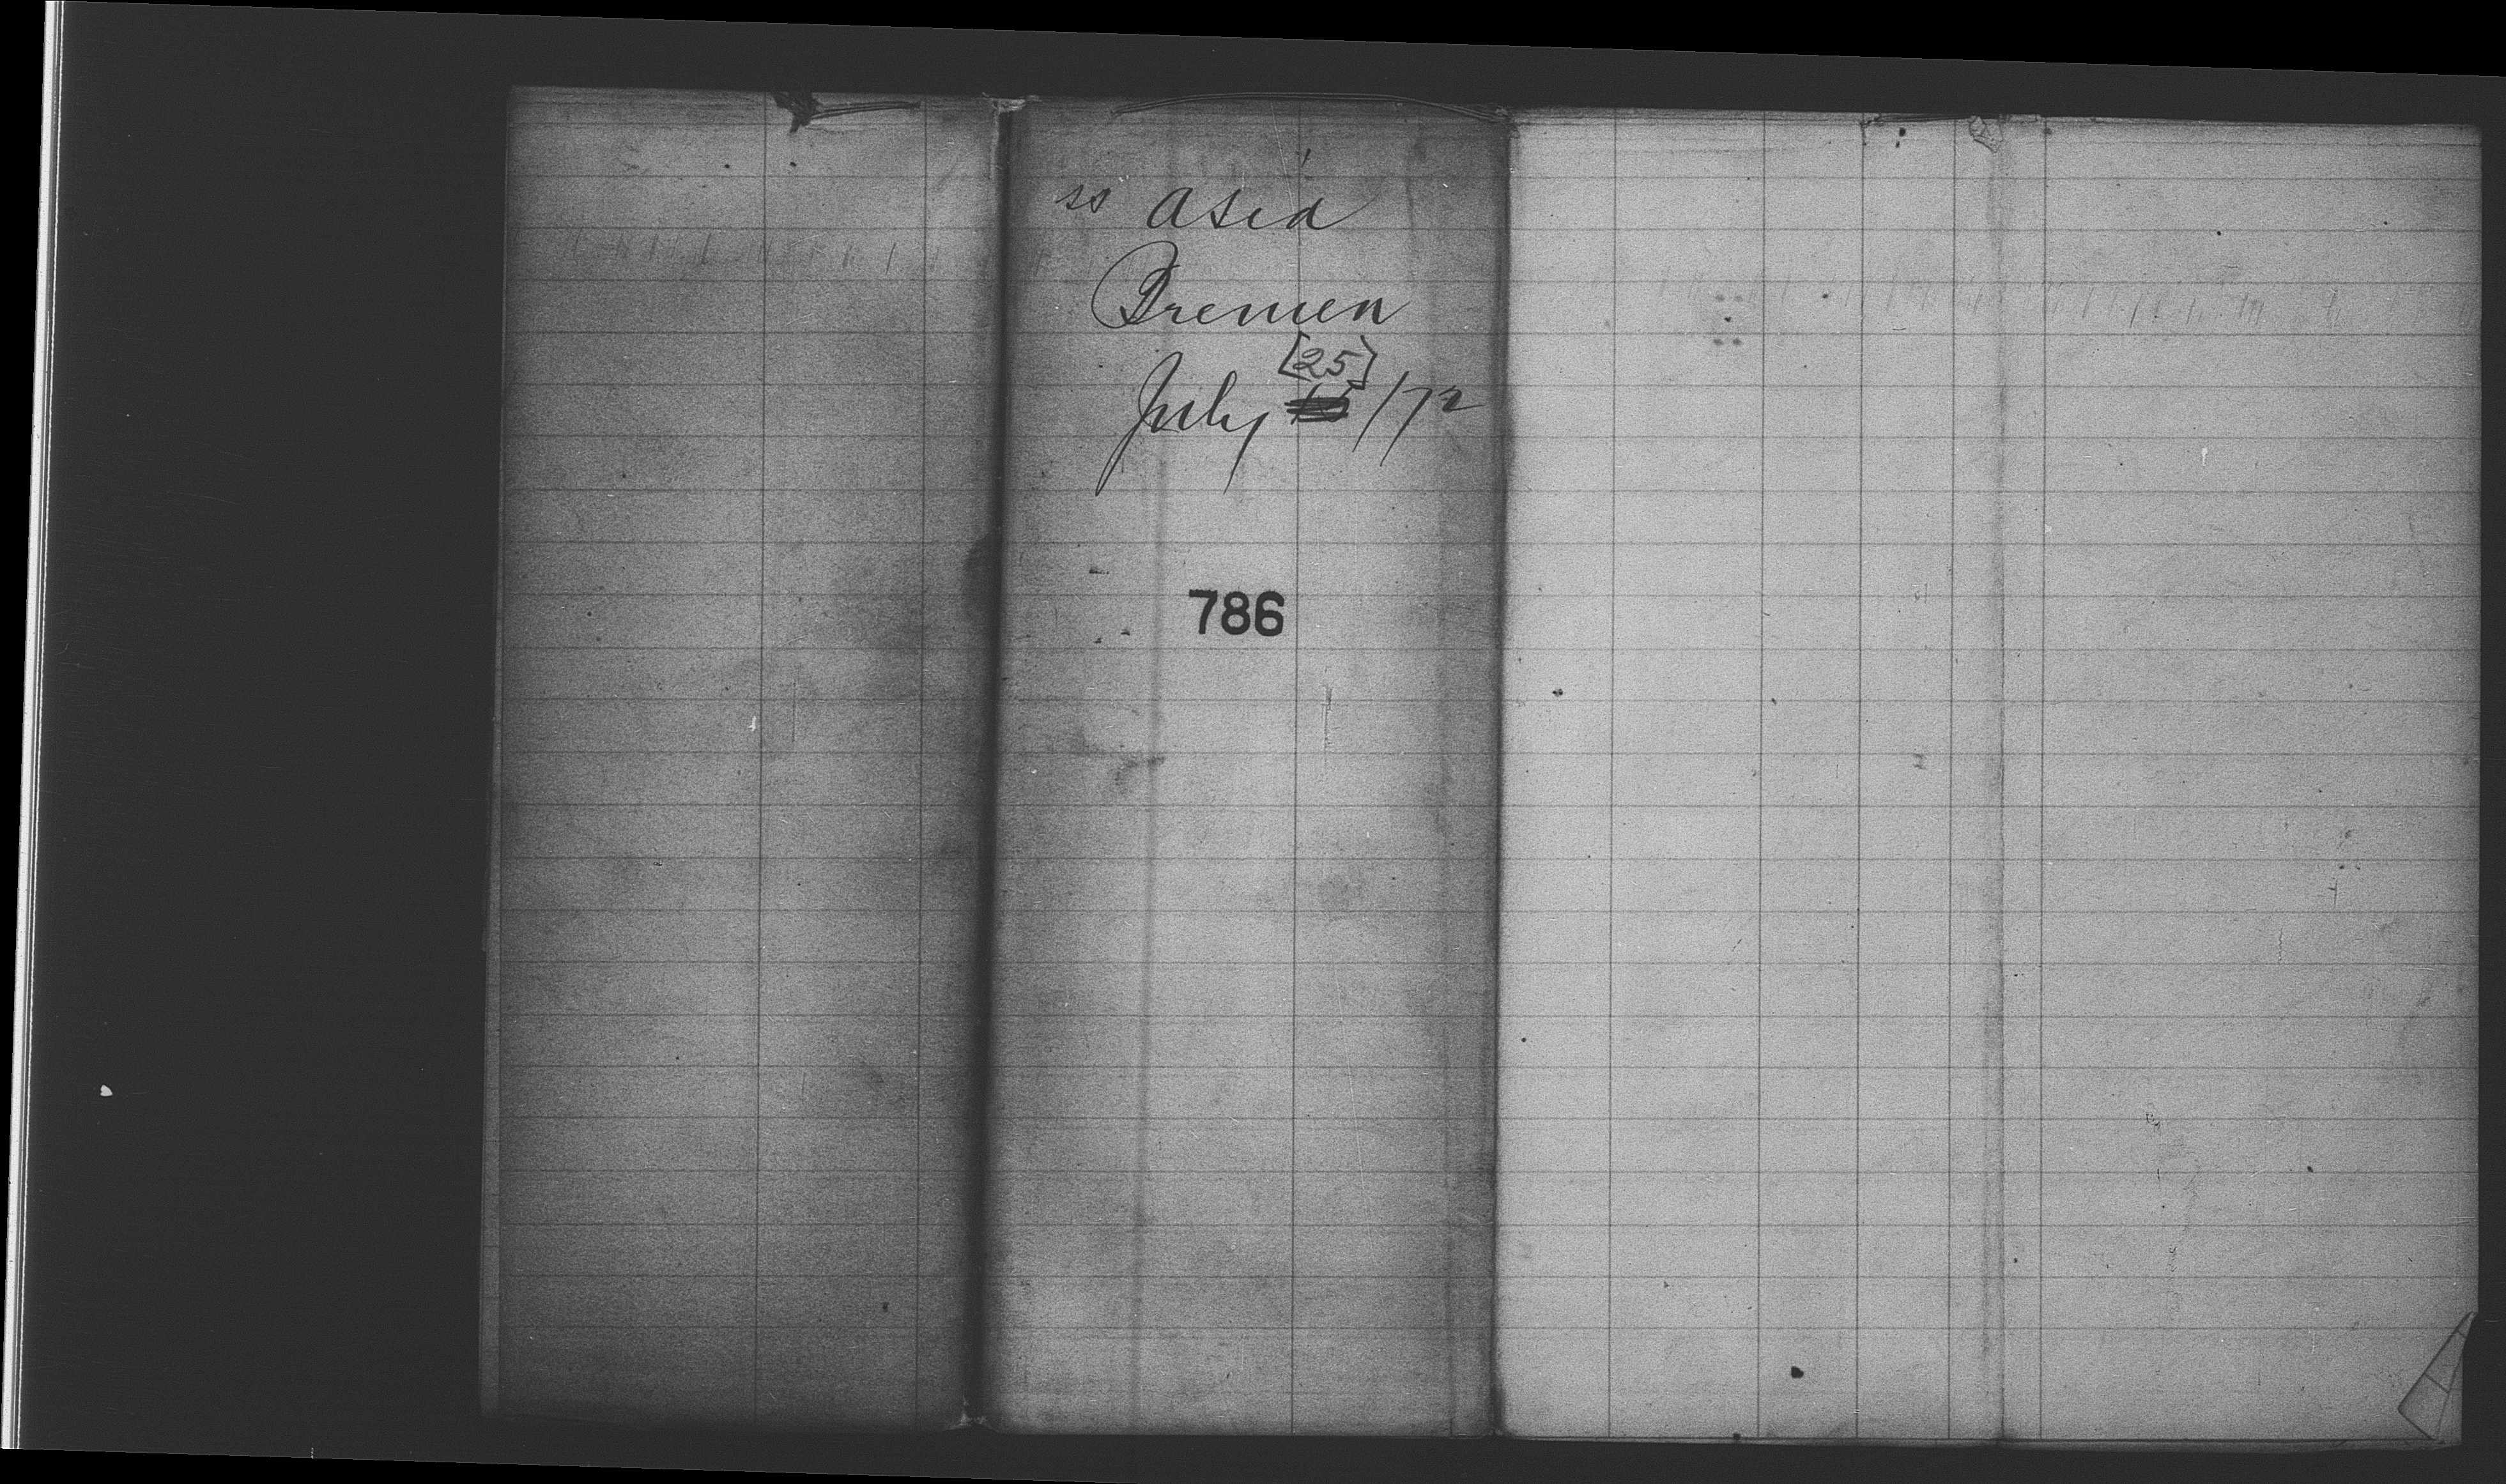 ss Asia
Bremen
[25]
July /72
786